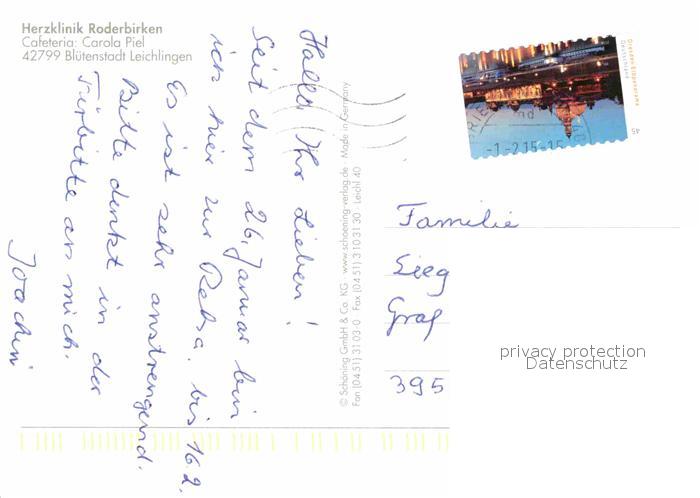 Herzklinik Roderbirken
Cafeteria: Carola Piel
42799 Blütenstadt Leichlingen
Hallo Ihr Lieben!
Seit dem 26. Januar bin
ich hier zur Reha bis 16.2.
Es ist sehr anstrengend.
Bitte denkt in der
Fürbitte an mich.
Joachim
© Schöning GmbH & Co. KG · www.schoening-verlag.de · Made in Germany
Fon (04 51) 31 03-0 Fax (04 51) 3 10 31 30 Leichl 40
Dresden Elbpanorama
Deutschland
45
-1.-2.15-15
Familie
Sieg
Graf
395
privacy protection
Datenschutz